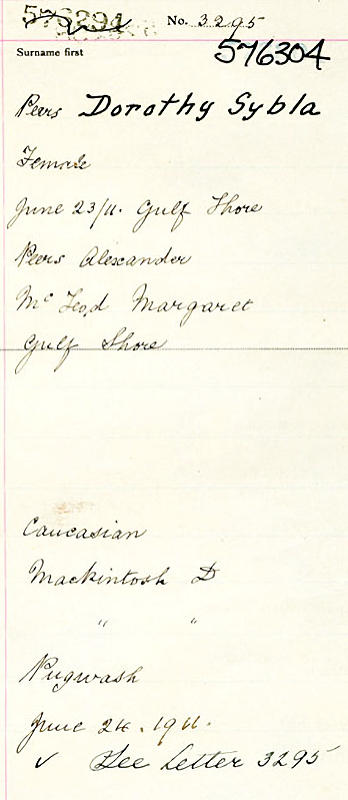 No. 3295
576304
Surname first
Peers Dorothy Sybla
Female
June 23/11. Gulf Shore
Peers Alexander
Mc Leod Margaret
Gulf Shore
Caucasian
Mackintosh D
" "
Pugwash
June 24. 1911.
✓ See Letter 3295